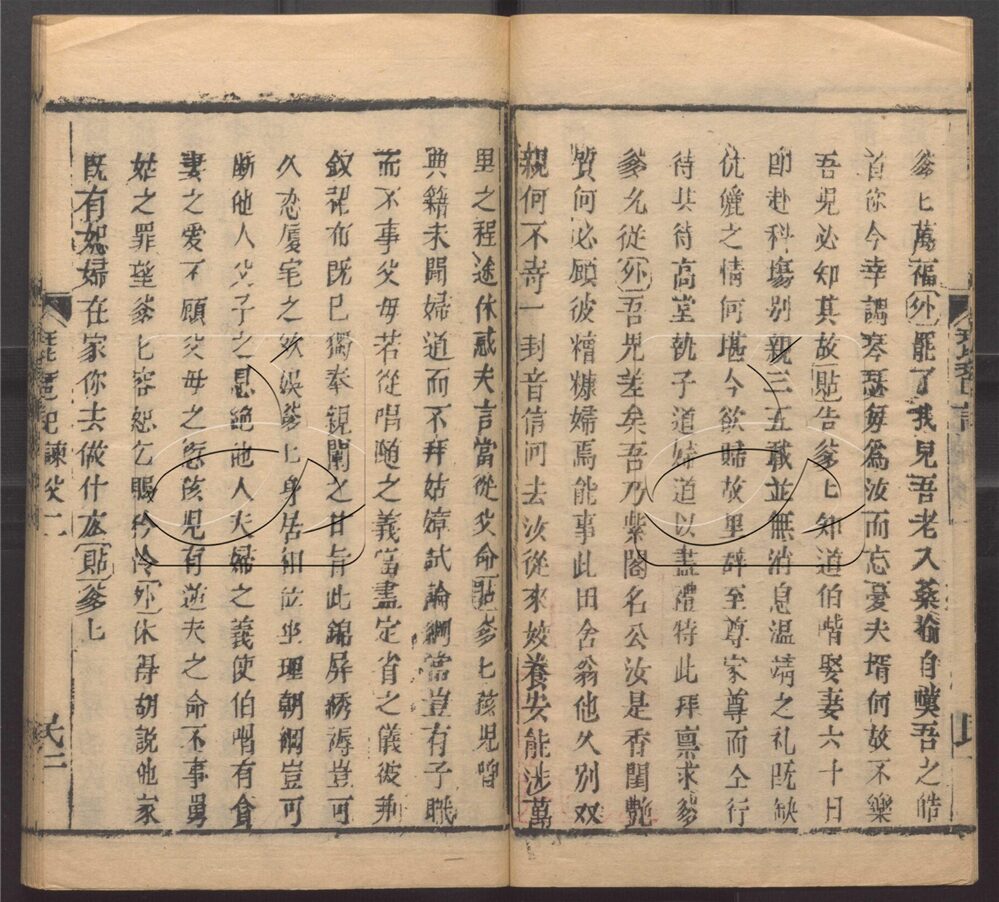 爹匕萬福外罷了我見吾老入桑榆自嘆吾之皓
首你今幸調琴瑟每為汝而忘憂夫壻何故不樂
吾児必知其故貼告爹匕知道伯喈娶妻六十日
即赴科場别親三五載並無消息温凊之礼既缺
伉儷之情何堪今欲歸故里辞至尊家尊而仝行
待共侍高堂執子道婦道以盡禮特此拜禀求爹
爹允從外吾児差矣吾乃紫閣名公汝是香閨艶
質何必顧彼糟糠婦焉能事此田舍翁他久別双
親何不寄一封音信回去汝從來姣養安能涉萬
里之程途休惑夫言當從父命貼爹匕孩児曾
典籍未聞婦道而不拜姑嫜試論綱常豈有子職
而不事父母若從唱随之義當盡定省之儀彼荆
釵裙布既已獨奉親闈之甘旨此錦屏綉褥豈可
久恋厦宅之欢娯爹匕身居相位坐理朝綱豈可
断他人父子之恩絶他人夫婦之義使伯喈有貪
妻之愛不顧父母之您孩児有逆夫之命不事舅
姑之罪望爹匕容恕乞賜矜怜外休得胡説他家
既有媳婦在家你去做什庅貼爹匕
琵琶記諫父二